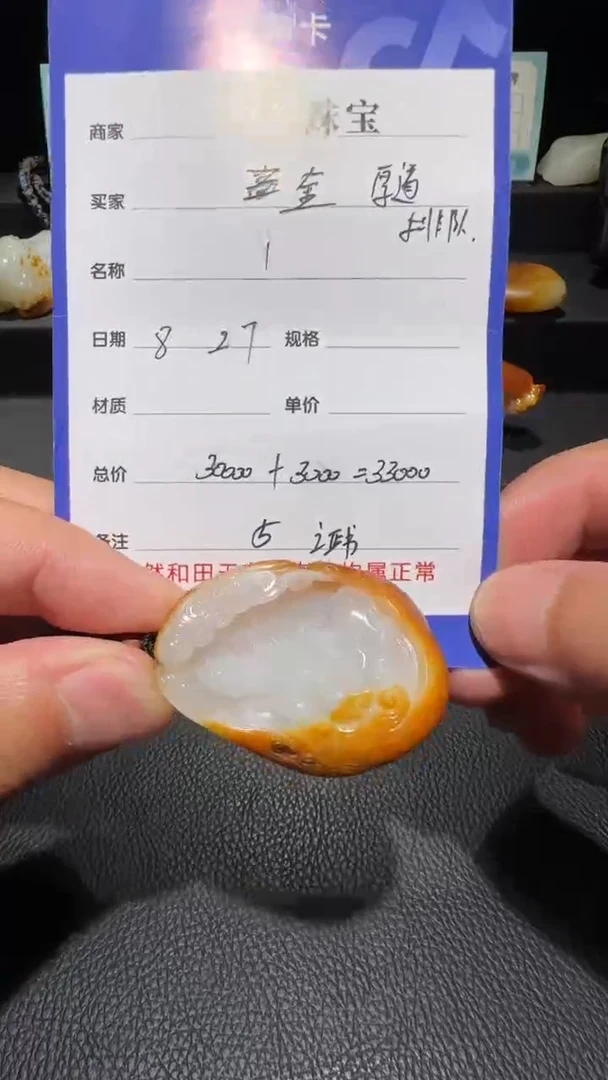 卡
商家 珠宝
买家 厚道
排队.
名称 1
日期 8 27 规格
材质 单价
总价 30000 + 3000 = 33000
备注 ⑤ 证书
然和田玉 属正常